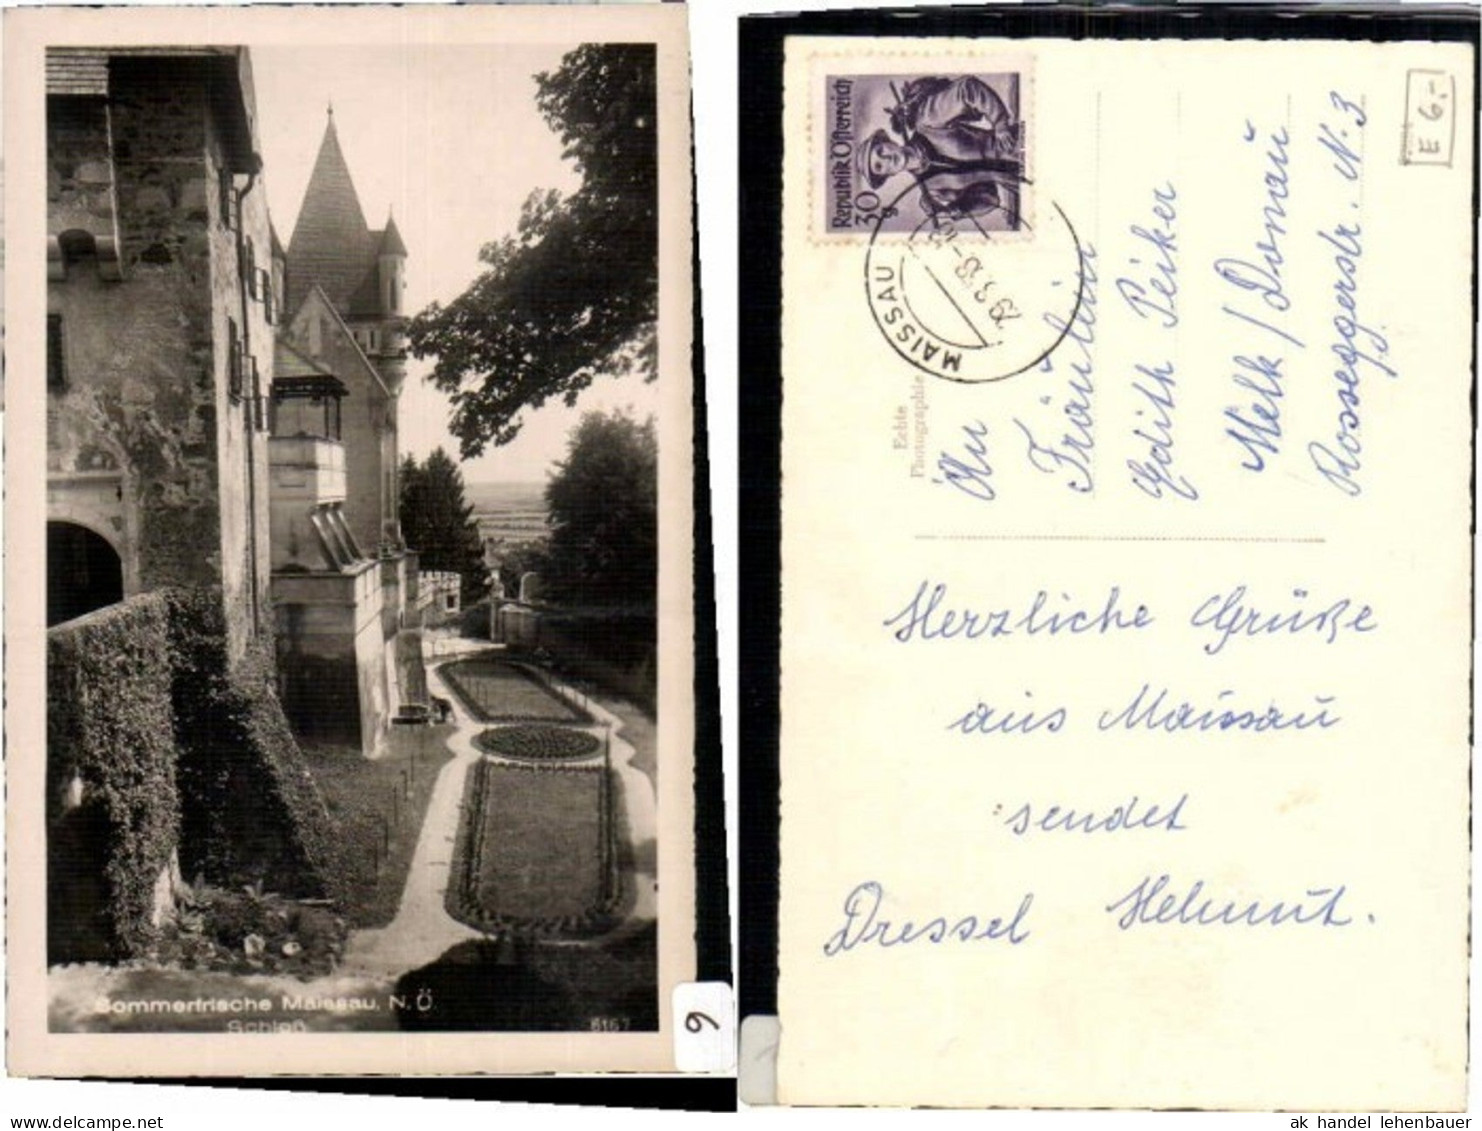 Sommerfrische Maissau. N.Ö.
Schloß
9
Republik Österreich
30 g
MAISSAU MAISSAU
E 6,-
Echte
Photographie
An
Fräulein
Edith Peiker
Melk / Donau
Roseggerstr. N. 3
Herzliche Grüße
aus Maissau
sendet
Dressel Helmut.
ak handel lehenbauer